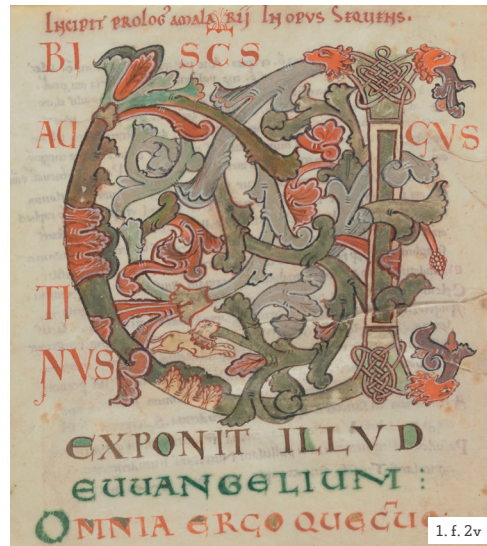 INCIPIT PROLOG' AMALA RIJ IN OPVS SEQUENS.
BI SCS
AU GVS
TI
NVS
EXPONIT ILLVD
EUUANGELIUM :
OMNIA ERGO
1. f. 2v